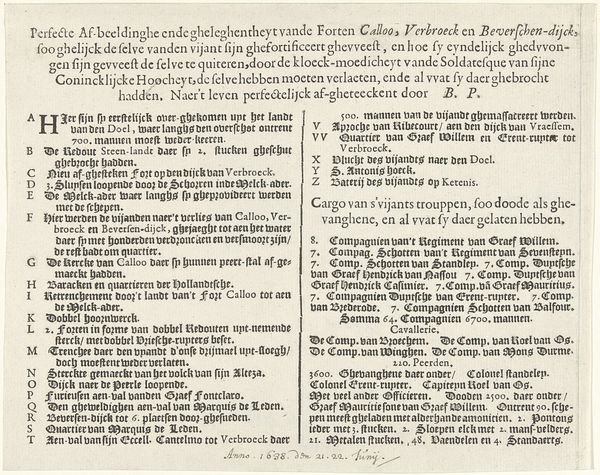 Perfecte Af-beeldinghe ende gheleghentheyt vande Forten Calloo, Verbroeck en Beverschen-dijck,
soo ghelijck de selve vanden vijant sijn ghefortificeert ghevveest, en hoe sy eyndelijck ghedvvon-
gen sijn gevveest de selve te quiteren, door de kloeck-moedicheyt vande Soldatesque van sijne
Conincklijcke Hoocheyt, de selve hebben moeten verlaeten, ende al vvat sy daer ghebrocht
hadden. Naer't leven perfectelijck af-gheteeckent door B. P.
A HIer sijn sp eerstelijck over-ghekomen upt het landt
van den Doel, waer langhs den overschot ontrent
700. mannen moest weder-keeren.
B De Redout Steen-landt daer sp 2. stucken gheschut
ghebrocht hadden.
C Nieu af-ghesteken Fort op den dijck van Verbroeck.
D 3. Slupsen loopende door de Schorren inde Melck-ader.
E De Melck-ader waer langhs sp gheprovideert werden
met de schepen.
F Hier werden de vijanden naer't verlies van Calloo, Ver-
broeck en Beversen-dijck, ghejaeght tot aen het water
daer sp met honderden verdroncken en versmoort zijn/
de rest hadt om quartier.
G De kercke van Calloo daer sp hunnen peert-stal af-ge-
maeckt hadden.
H Baracken en quartieren der Hollandtsche.
I Retrenchement door't landt van't Fort Calloo tot aen
de Melck-ader.
K Dobbel hoornwerck.
L 2. Forten in forme van dobbel Redouten upt-nemende
sterck/ met dobbel Vriesche-rupters beset.
M Trenchee daer den vpandt d'onse drijmael upt-sloegh/
doch moesten de weder verlaeten.
N Sterckte gemaeckt van het volck van sijn Alteza.
O Dijck naer de Peerle loopende.
P Furieusen aen-val vanden Graef Fontclaro.
Q Den gheweldighen aen-val van Marquis de Leden.
R Beversen-dijck tot 6. plaetsen door-ghesneden.
S Quartier van Marquis de Leden.
T Aen-val van sijn Eccell. Cantelmo tot Verbroeck daer
500. mannen van de vijandt ghemassacreert werden.
V Aproche van Ribecourt/ aen den dijck van Vraessem.
VV Quartier van Graef Willem en Erent-rupter tot
Verbroeck.
X Vlucht des vijandts naer den Doel.
Y S. Antonis hoeck.
Z Baterij des vijandts op Ketenis.
Cargo van s'vijants trouppen, soo doode als ghe-
vanghene, en al vvat sy daer gelaten hebben.
8. Compagnien van't Regiment van Graef Willem.
7. Compag. Schotten van't Regiment van Sevensteyn.
7. Comp. Schotten van Standlep. 7. Comp. Duptsche
van Graef Hendrick van Nassou 7. Comp. Duptsche van
Graef Hendrick Casimier. 7. Comp. vā Graef Mauritius.
7. Compagnien Duptsche van Erent-rupter. 7. Comp.
van Brederode. 7. Compagnien Schotten van Balfour.
Somma 64. Compagnien 6700. mannen.
Cavallerie.
De Comp. van Broechem. De Comp. van Roel van Os.
De Comp. van Winghen. De Comp. van Mons Durme-
220. Peerden.
3600. Ghevanghene daer onder/ Colonel standelep.
Colonel Erent-rupter. Capiteyn Roel van Os.
Met veel ander Officieren. Dooden 2500. daer onder/
Graef Maurits sone van Graef Willem. Ontrent 90. sche-
pen meest gheladen met alderhande amonitien. 2. Pontons
ieder met 3. stucken. 2. Sloepen elck met 2. mansf-velders.
21. Metalen stucken. 48. Vaendelen en 4. Standaerts.
Anno. 1638. den 21. 22. Junij.